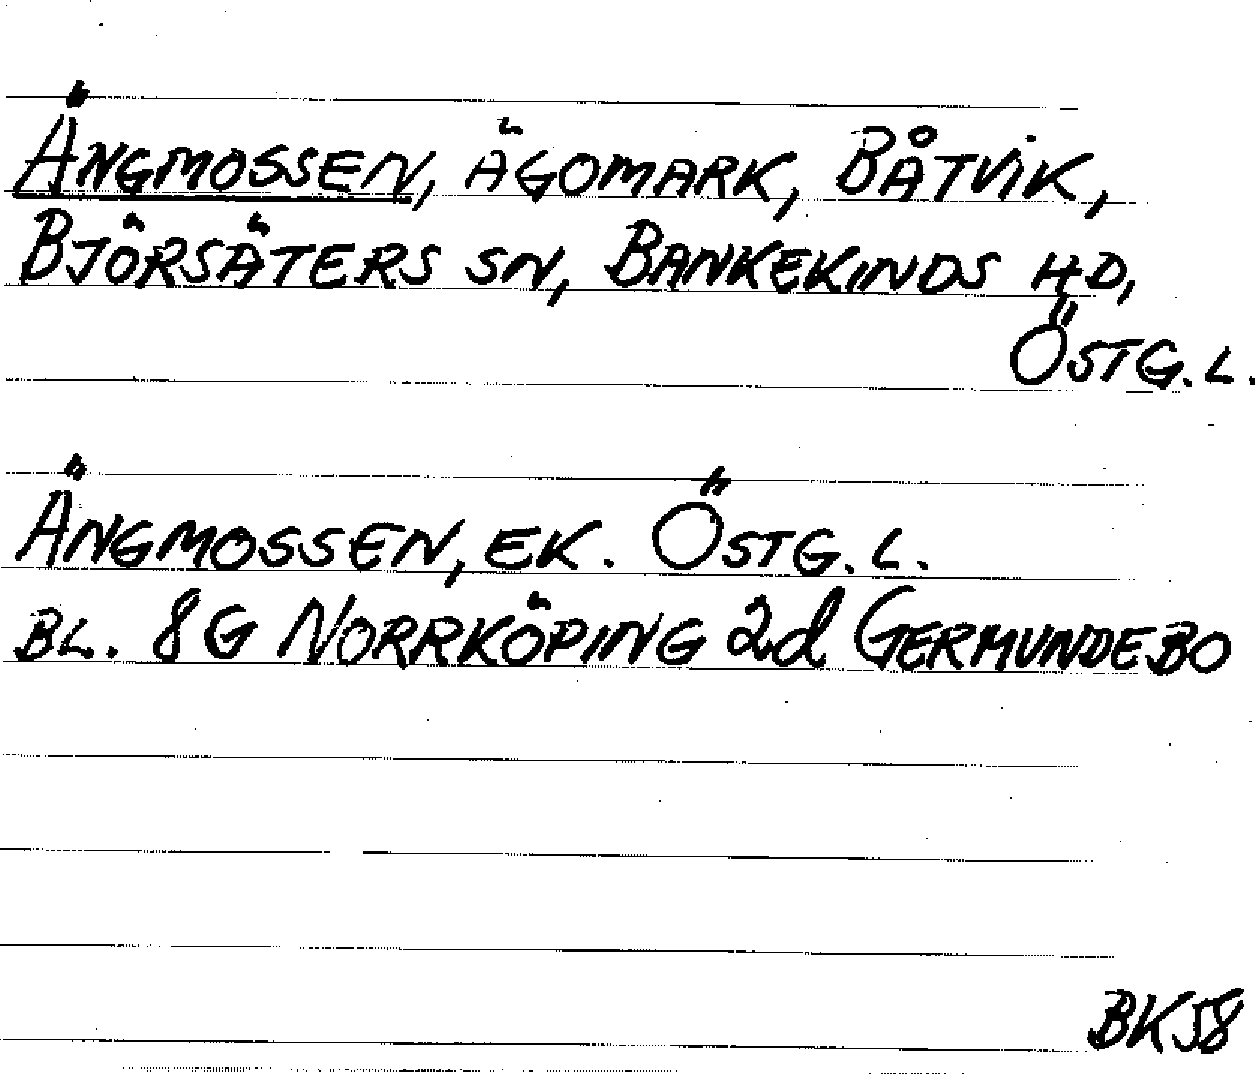 ÄNGMOSSEN, ÄGOMARK, BÅTVIK,
BJÖRSÄTERS SN, BANKEKINDS HD,
ÖSTG. L.
ÄNGMOSSEN, EK. ÖSTG. L.
BL. 8G NORRKÖPING 2d GERMUNDEBO
BK58